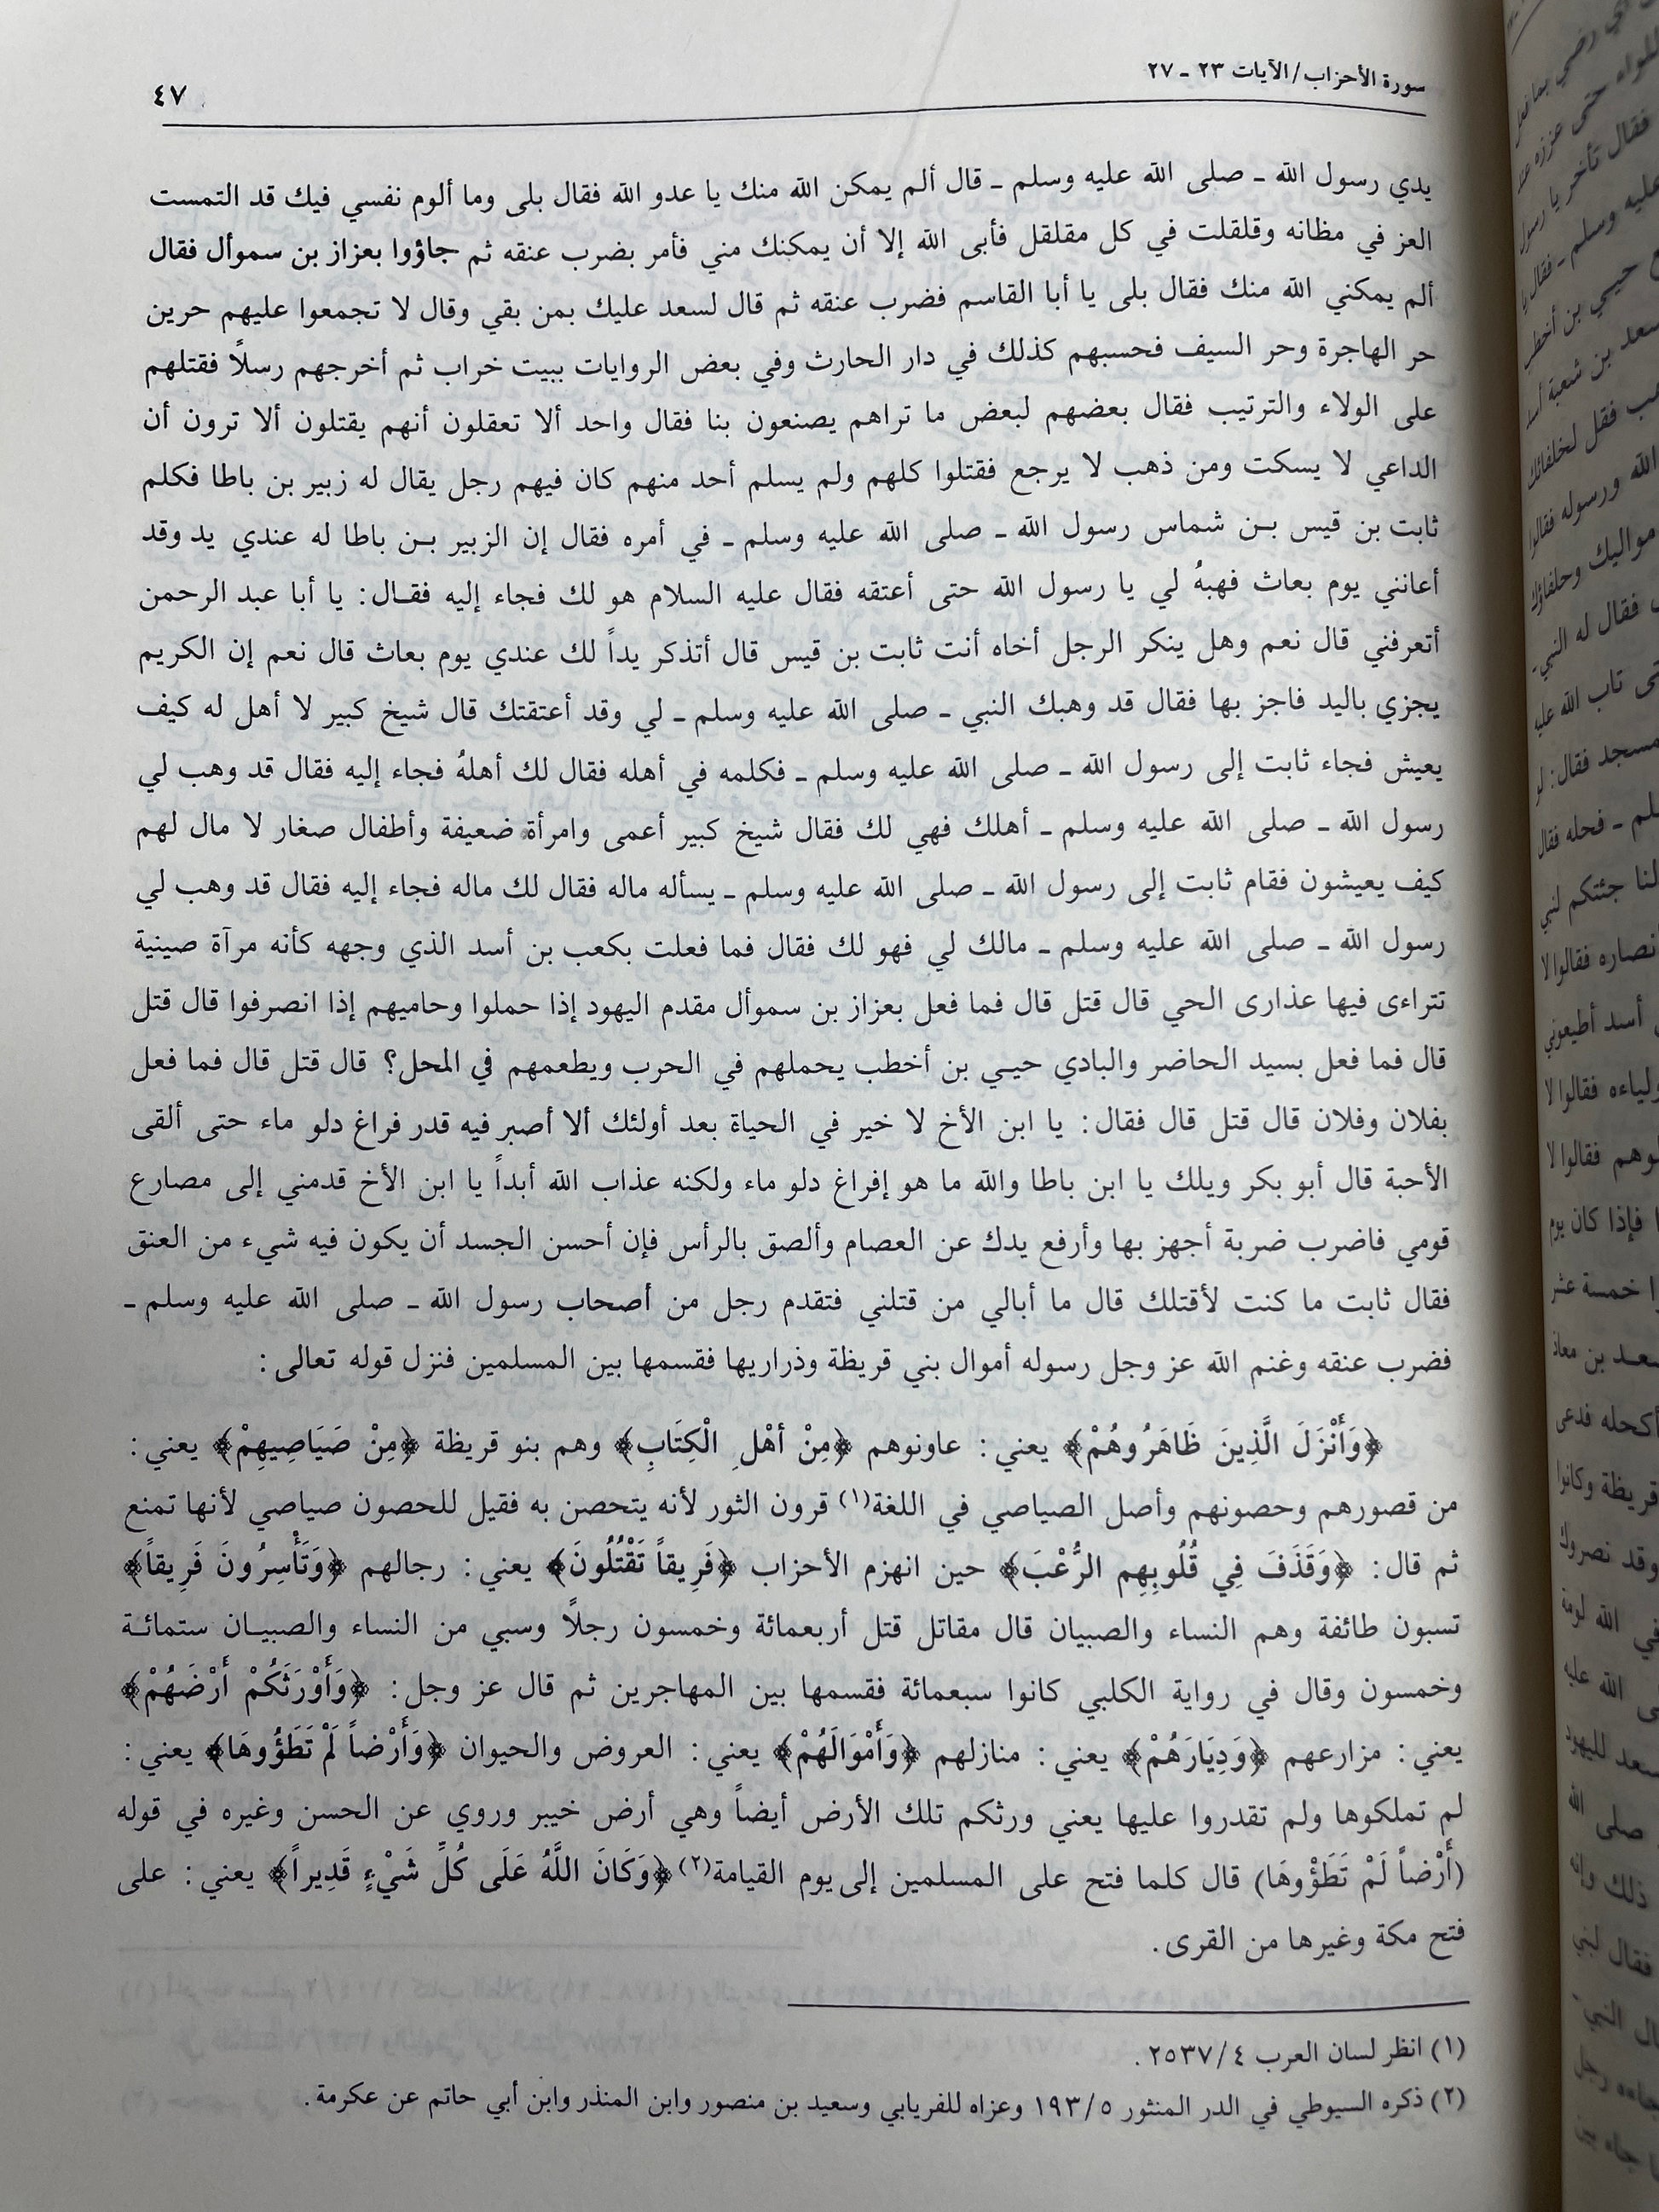 سورة الأحزاب/الآيات ٢٣ ـ ٢٧
٤٧
يدي رسول الله ـ صلى الله عليه وسلم ـ قال ألم يمكن الله منك يا عدو الله فقال بلى وما ألوم نفسي فيك قد التمست
العز في مظانه وقلقلت في كل مقلقل فأبى الله إلا أن يمكنك مني فأمر بضرب عنقه ثم جاؤوا بعزاز بن سموأل فقال
ألم يمكني الله منك فقال بلى يا أبا القاسم فضرب عنقه ثم قال لسعد عليك بمن بقي وقال لا تجمعوا عليهم حرين
حر الهاجرة وحر السيف فحسبهم كذلك في دار الحارث وفي بعض الروايات ببيت خراب ثم أخرجهم رسلاً فقتلهم
على الولاء والترتيب فقال بعضهم لبعض ما تراهم يصنعون بنا فقال واحد ألا تعقلون أنهم يقتلون ألا ترون أن
الداعي لا يسكت ومن ذهب لا يرجع فقتلوا كلهم ولم يسلم أحد منهم كان فيهم رجل يقال له زبير بن باطا فكلم
ثابت بن قيس بن شماس رسول الله ـ صلى الله عليه وسلم ـ في أمره فقال إن الزبير بن باطا له عندي يد وقد
أعانني يوم بعاث فهبهُ لي يا رسول الله حتى أعتقه فقال عليه السلام هو لك فجاء إليه فقال: يا أبا عبد الرحمن
أتعرفني قال نعم وهل ينكر الرجل أخاه أنت ثابت بن قيس قال أتذكر يداً لك عندي يوم بعاث قال نعم إن الكريم
يجزي باليد فاجز بها فقال قد وهبك النبي ـ صلى الله عليه وسلم ـ لي وقد أعتقتك قال شيخ كبير لا أهل له كيف
يعيش فجاء ثابت إلى رسول الله ـ صلى الله عليه وسلم ـ فكلمه في أهله فقال لك أهلهُ فجاء إليه فقال قد وهب لي
رسول الله ـ صلى الله عليه وسلم ـ أهلك فهي لك فقال شيخ كبير أعمى وامرأة ضعيفة وأطفال صغار لا مال لهم
كيف يعيشون فقام ثابت إلى رسول الله ـ صلى الله عليه وسلم ـ يسأله ماله فقال لك ماله فجاء إليه فقال قد وهب لي
رسول الله ـ صلى الله عليه وسلم ـ مالك لي فهو لك فقال فما فعلت بكعب بن أسد الذي وجهه كأنه مرآة صينية
تتراءى فيها عذارى الحي قال قتل قال فما فعل بعزاز بن سموأل مقدم اليهود إذا حملوا وحاميهم إذا انصرفوا قال قتل
قال فما فعل بسيد الحاضر والبادي حيي بن أخطب يحملهم في الحرب ويطعمهم في المحل؟ قال قتل قال فما فعل
بفلان وفلان قال قتل قال فقال: يا ابن الأخ لا خير في الحياة بعد أولئك ألا أصبر فيه قدر فراغ دلو ماء حتى ألقى
الأحبة قال أبو بكر ويلك يا ابن باطا والله ما هو إفراغ دلو ماء ولكنه عذاب الله أبداً يا ابن الأخ قدمني إلى مصارع
قومي فاضرب ضربة أجهز بها وأرفع يدك عن العصام وألصق بالرأس فإن أحسن الجسد أن يكون فيه شيء من العنق
فقال ثابت ما كنت لأقتلك قال ما أبالي من قتلني فتقدم رجل من أصحاب رسول الله ـ صلى الله عليه وسلم ـ
فضرب عنقه وغنم الله عز وجل رسوله أموال بني قريظة وذراريها فقسمها بين المسلمين فنزل قوله تعالى:
﴿وَأَنْزَلَ الَّذِينَ ظَاهَرُوهُمْ﴾ يعني: عاونوهم ﴿مِنْ أهْلِ الْكِتَابِ﴾ وهم بنو قريظة ﴿مِنْ صَيَاصِيهِمْ﴾ يعني:
من قصورهم وحصونهم وأصل الصياصي في اللغة(١) قرون الثور لأنه يتحصن به فقيل للحصون صياصي لأنها تمنع
ثم قال: ﴿وَقَذَفَ فِي قُلُوبِهِم الرُّعْبَ﴾ حين انهزم الأحزاب ﴿فَرِيقاً تَقْتُلُونَ﴾ يعني: رجالهم ﴿وَتَأْسِرُونَ فَرِيقاً﴾
تسبون طائفة وهم النساء والصبيان قال مقاتل قتل أربعمائة وخمسون رجلاً وسبي من النساء والصبيان ستمائة
وخمسون وقال في رواية الكلبي كانوا سبعمائة فقسمها بين المهاجرين ثم قال عز وجل: ﴿وَأَوْرَثَكُمْ أَرْضَهُمْ﴾
يعني: مزارعهم ﴿وَدِيَارَهُمْ﴾ يعني: منازلهم ﴿وَأَمْوَالَهُمْ﴾ يعني: العروض والحيوان ﴿وَأَرْضاً لَمْ تَطَؤُوهَا﴾ يعني:
لم تملكوها ولم تقدروا عليها يعني ورثكم تلك الأرض أيضاً وهي أرض خيبر وروي عن الحسن وغيره في قوله
(أَرْضاً لَمْ تَطَؤْوهَا) قال كلما فتح على المسلمين إلى يوم القيامة(٢) ﴿وَكَانَ اللَّهُ عَلَى كُلِّ شَيْءٍ قَدِيراً﴾ يعني: على
فتح مكة وغيرها من القرى.
(١) انظر لسان العرب ٢٥٣٧/٤.
(٢) ذكره السيوطي في الدر المنثور ١٩٣/٥ وعزاه للفريابي وسعيد بن منصور وابن المنذر وابن أبي حاتم عن عكرمة.